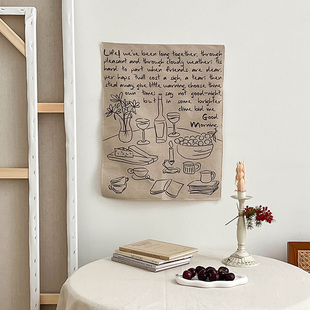 Life! we've been long together, through
pleasant and through cloudy weather; 'Tis
hard to part when friends are dear,
per haps 'twill cost a sigh, a tear; then
steal away, give little warning, choose thine
own time; say not good-night,
but in some brighter
clime bid me
Good
Morning.